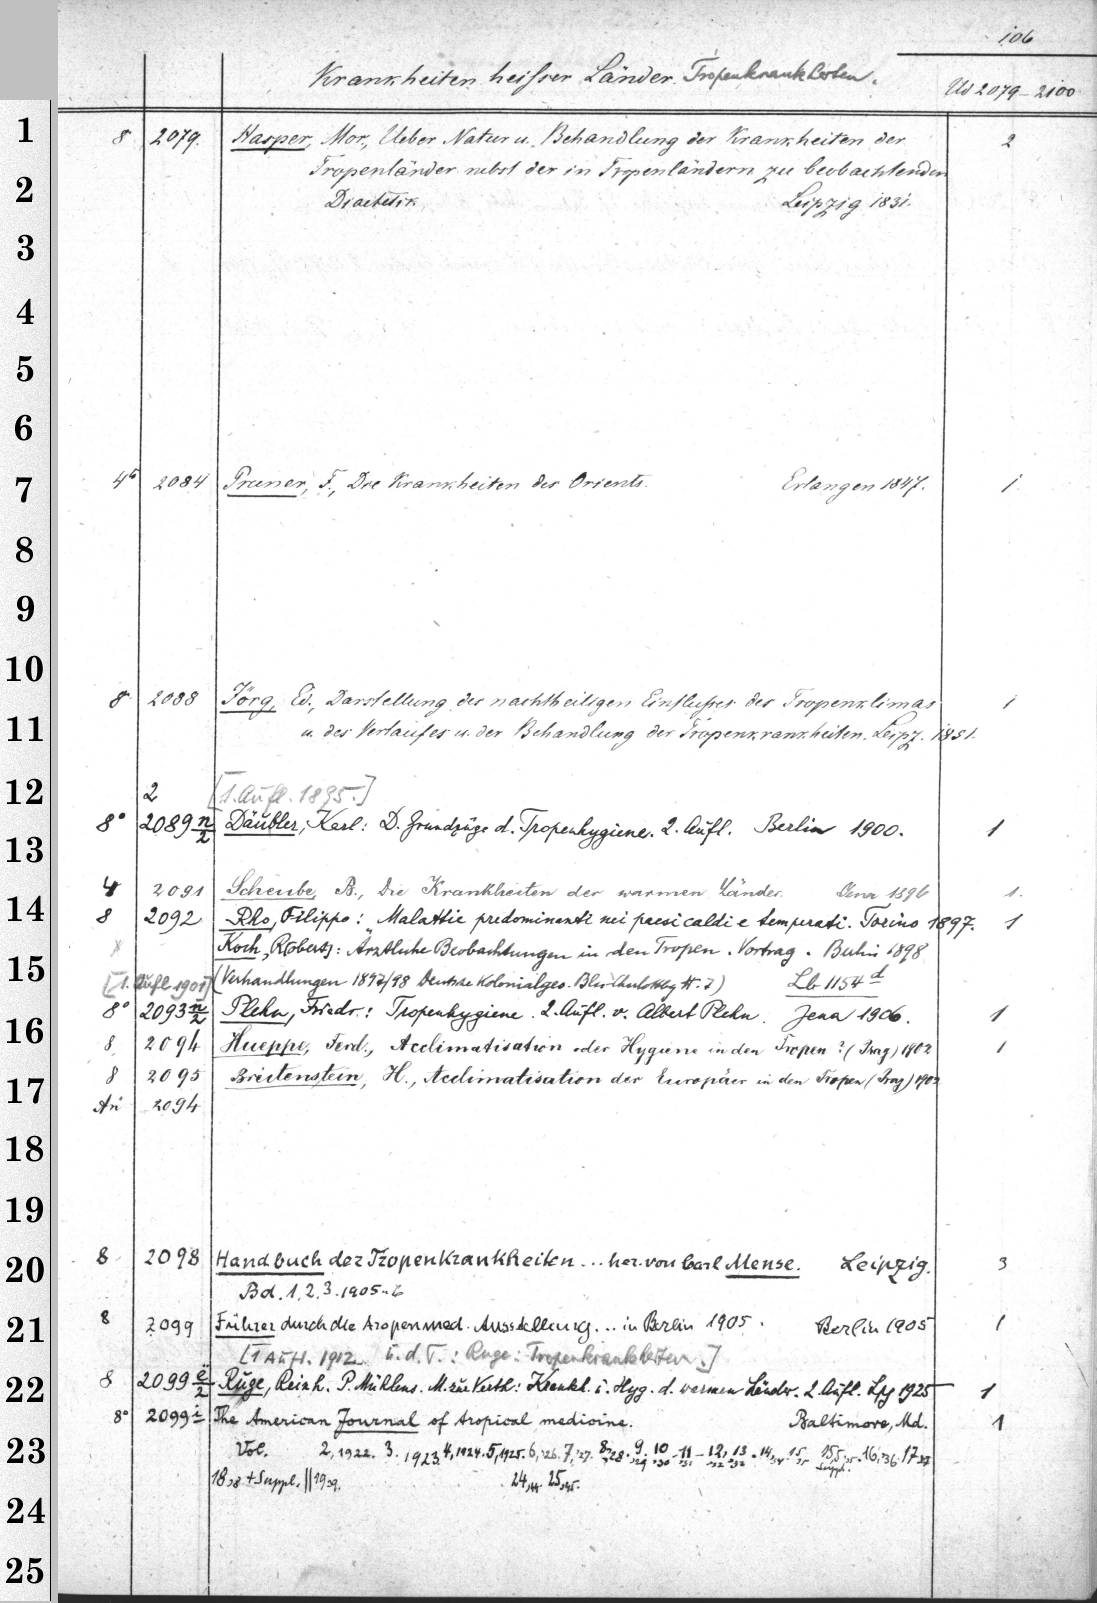 106
Krankheiten heißer Länder. Tropenkrankheiten.
Ud 2079-2100
1
8 2079. Hasper, Mor., Ueber Natur u. Behandlung der Krankheiten der 2
Tropenländer nebst der in Tropenländern zu beobachtenden
2
Diaetetik Leipzig 1831.
3
4
5
6
7
4° 2084 Pruner, F., Die Krankheiten des Orients. Erlangen 1847. 1.
8
9
10
8 2088 Jörg, Ed., Darstellung des nachtheiligen Einflußes des Tropenklimas 1
11
u. des Verlaufes u. der Behandlung der Tropenkrankheiten. Leipz. 1851.
12
2 [1. Aufl. 1895.]
8° 2089 n/2 Däubler, Karl: D. Grundzüge d. Tropenhygiene. 2. Aufl. Berlin 1900. 1
13
4 2091 Scheube, B., Die Krankheiten der warmen Länder. Jena 1896 1.
14
8 2092 Rho, Filippo: Malattie predominenti nei paesi caldi e temperati. Torino 1897. 1
Koch, R[obert]: Ärztliche Beobachtungen in den Tropen. Vortrag. Berlin 1898
15
[1. Aufl 1901] (Verhandlungen 1897/98 Deutsche Kolonialges. H. 7) Lb 1154 d
8° 2093 n/2 Plehn, Friedr.: Tropenhygiene. 2. Aufl. v. Albert Plehn. Jena 1906. 1
16
8. 2094 Hueppe, Ferd., Acclimatisation oder Hygiene in den Tropen? (Prag) 1902 1
8 2095 Breitenstein, H., Acclimatisation der Europäer in den Tropen (Prag) 1902
17
2094
18
19
8 2098 Handbuch der Tropenkrankheiten ... her. von Carl Mense. Leipzig. 3
20
Bd. 1. 2. 3. 1905-6
8 2099 Führer durch die Tropenmed. Ausstellung ... in Berlin 1905. Berlin 1905 1
21
[1 Aufl. 1912 u. d. T.: Ruge: Tropenkrankheiten.]
8 2099 e/2 Ruge, Reinh. P. Mühlens. M. zur Verth: Krankh. u. Hyg. d. warmen Länder. 2. Aufl. Lpz 1925 1
22
8° 2099 i The American Journal of tropical medicine. Baltimore, Md. 1
23
Vol. 2, 1922. 3. 1923. 4, 1924. 5, 1925. 6, '26. 7, '27. 8, '28. 9, '29 10, '30 - 11, '31 - 12, '32 13 . 14, '34 . 15, '35 15, Suppl. '35. 16, '36. 17 '37
18, 38 + Suppl. || 19 39. 24, 44. 25, 45.
24
25